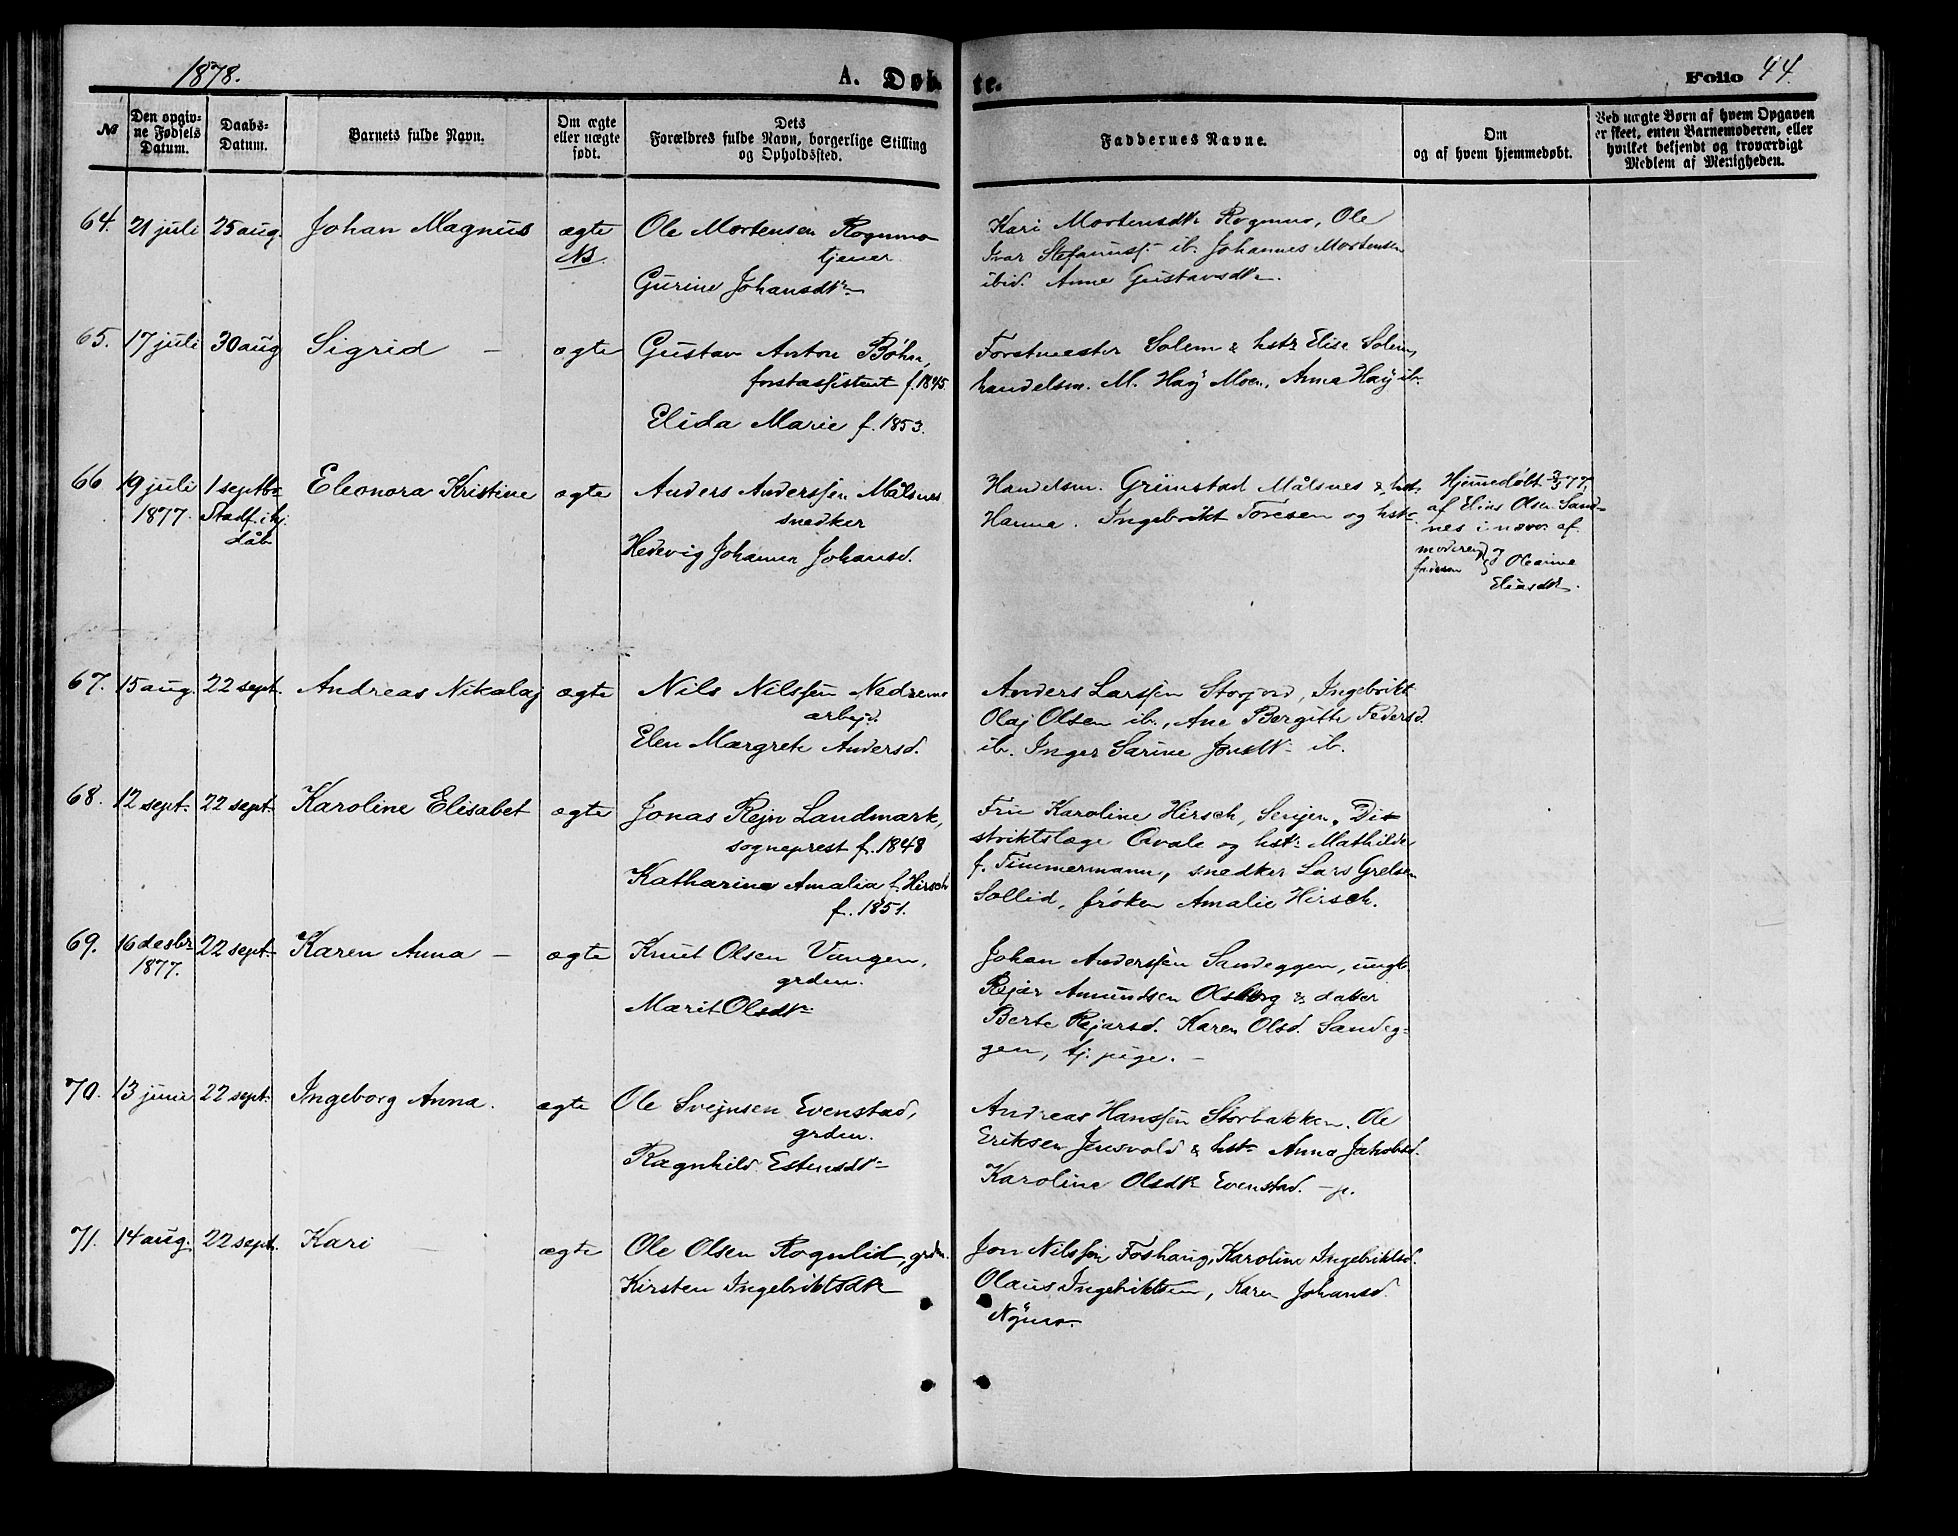 1878.
A. Døb-
te.
Folio 44.
№
Den opgiv-
ne Fødsels
Datum.
Daabs-
Datum.
Barnets fulde Navn.
Om ægte
eller uægte
født.
Dets
Forældres fulde Navn, borgerlige Stilling
og Opholdssted.
Faddernes Navne.
Om
og af hvem hjemmedøbt.
Ved uægte Børn af hvem Opgaven
er skeet, enten Barnemoderen, eller
hvilket bekjendt og troværdigt
Medlem af Menigheden.
64. 21 juli 25 aug. Johan Magnus ægte Ole Mortensen Rognmo
NB. tjener.
Gurine Johansdtr
Kari Mortensdtr Rognmo, Ole
Ivar Stefanuss. ib. Johannes Mortensen
ibid. Anne Gustavsdtr.
65. 17 juli 30 aug Sigrid – ægte Gustav Anton Bøhn,
forstassistent f. 1845.
Elida Marie f. 1853.
Forstmester Solem & hstr Elise Solem,
handelsm. M. Haÿ Moen, Anna Haÿ ib.
66 19 juli 1 septbr Eleonora Kristine ægte Anders Anderssen Målsnes
1877. Stadf. i hj. snedker
dåb Hedevig Johanna Johansd.
Handelsm. Grimstad Målsnes & hst.
Hanna. Ingebrikt Toresen og hstr
Hjemmedøbt 77,
af Elias Olsen Sand-
nes i nærvr af
moderen og
faderen Oleanna
Eliasdtr.
67. 15 aug. 22 sept. Andreas Nikolaj ægte Nils Nilssen Nedremo
arbejd.
Elen Margrete Andersd.
Anders Larssen Storjord, Ingebrikt
Olaj Olsen ib., Ane Bergitte Pedersd.
ib. Inger Sarine Jonsdtr ib.
68. 12 sept. 22 sept. Karoline Elisabet ægte Jonas Rejn Landmark,
sogneprest f. 1848
Katharina Amalia f. Hirsch
f. 1851.
Fru Karoline Hirsch, Senjen, Di-
striktslæge Qvale og hstr. Mathilde
f. Timmermann, snedker Lars Grelsen
Sollid, frøken Amalie Hirsch.
69. 16 desbr 22 sept. Karen Anna – ægte Knut Olsen Vangen,
1877. grdm.
Marit Olsdtr
Johan Anderssen Sandeggen, ungk.
Rejar Amundsen Olsborg & datter
Berte Rejarsd. Karen Olsd. Sandeg-
gen, tj. pige. –
70. 13 juni 22 sept. Ingeborg Anna. ægte Ole Svejnsen Evenstad,
grdm.
Ragnhild Estensdtr
Andreas Hanssen Storbakken. Ole
Eriksen Jensvold & hstr Anna Jakobsd.
Karoline Olsdtr Evenstad. – p.
71. 14 aug. 22 sept. Kari – ægte Ole Olsen Rognlid, grdm.
Kirsten Ingebriktsdtr
Jon Nilssen Foshaug, Karoline Ingebriktsd.
Olaus Ingebriktsen, Karen Johansd.
Nÿmo.